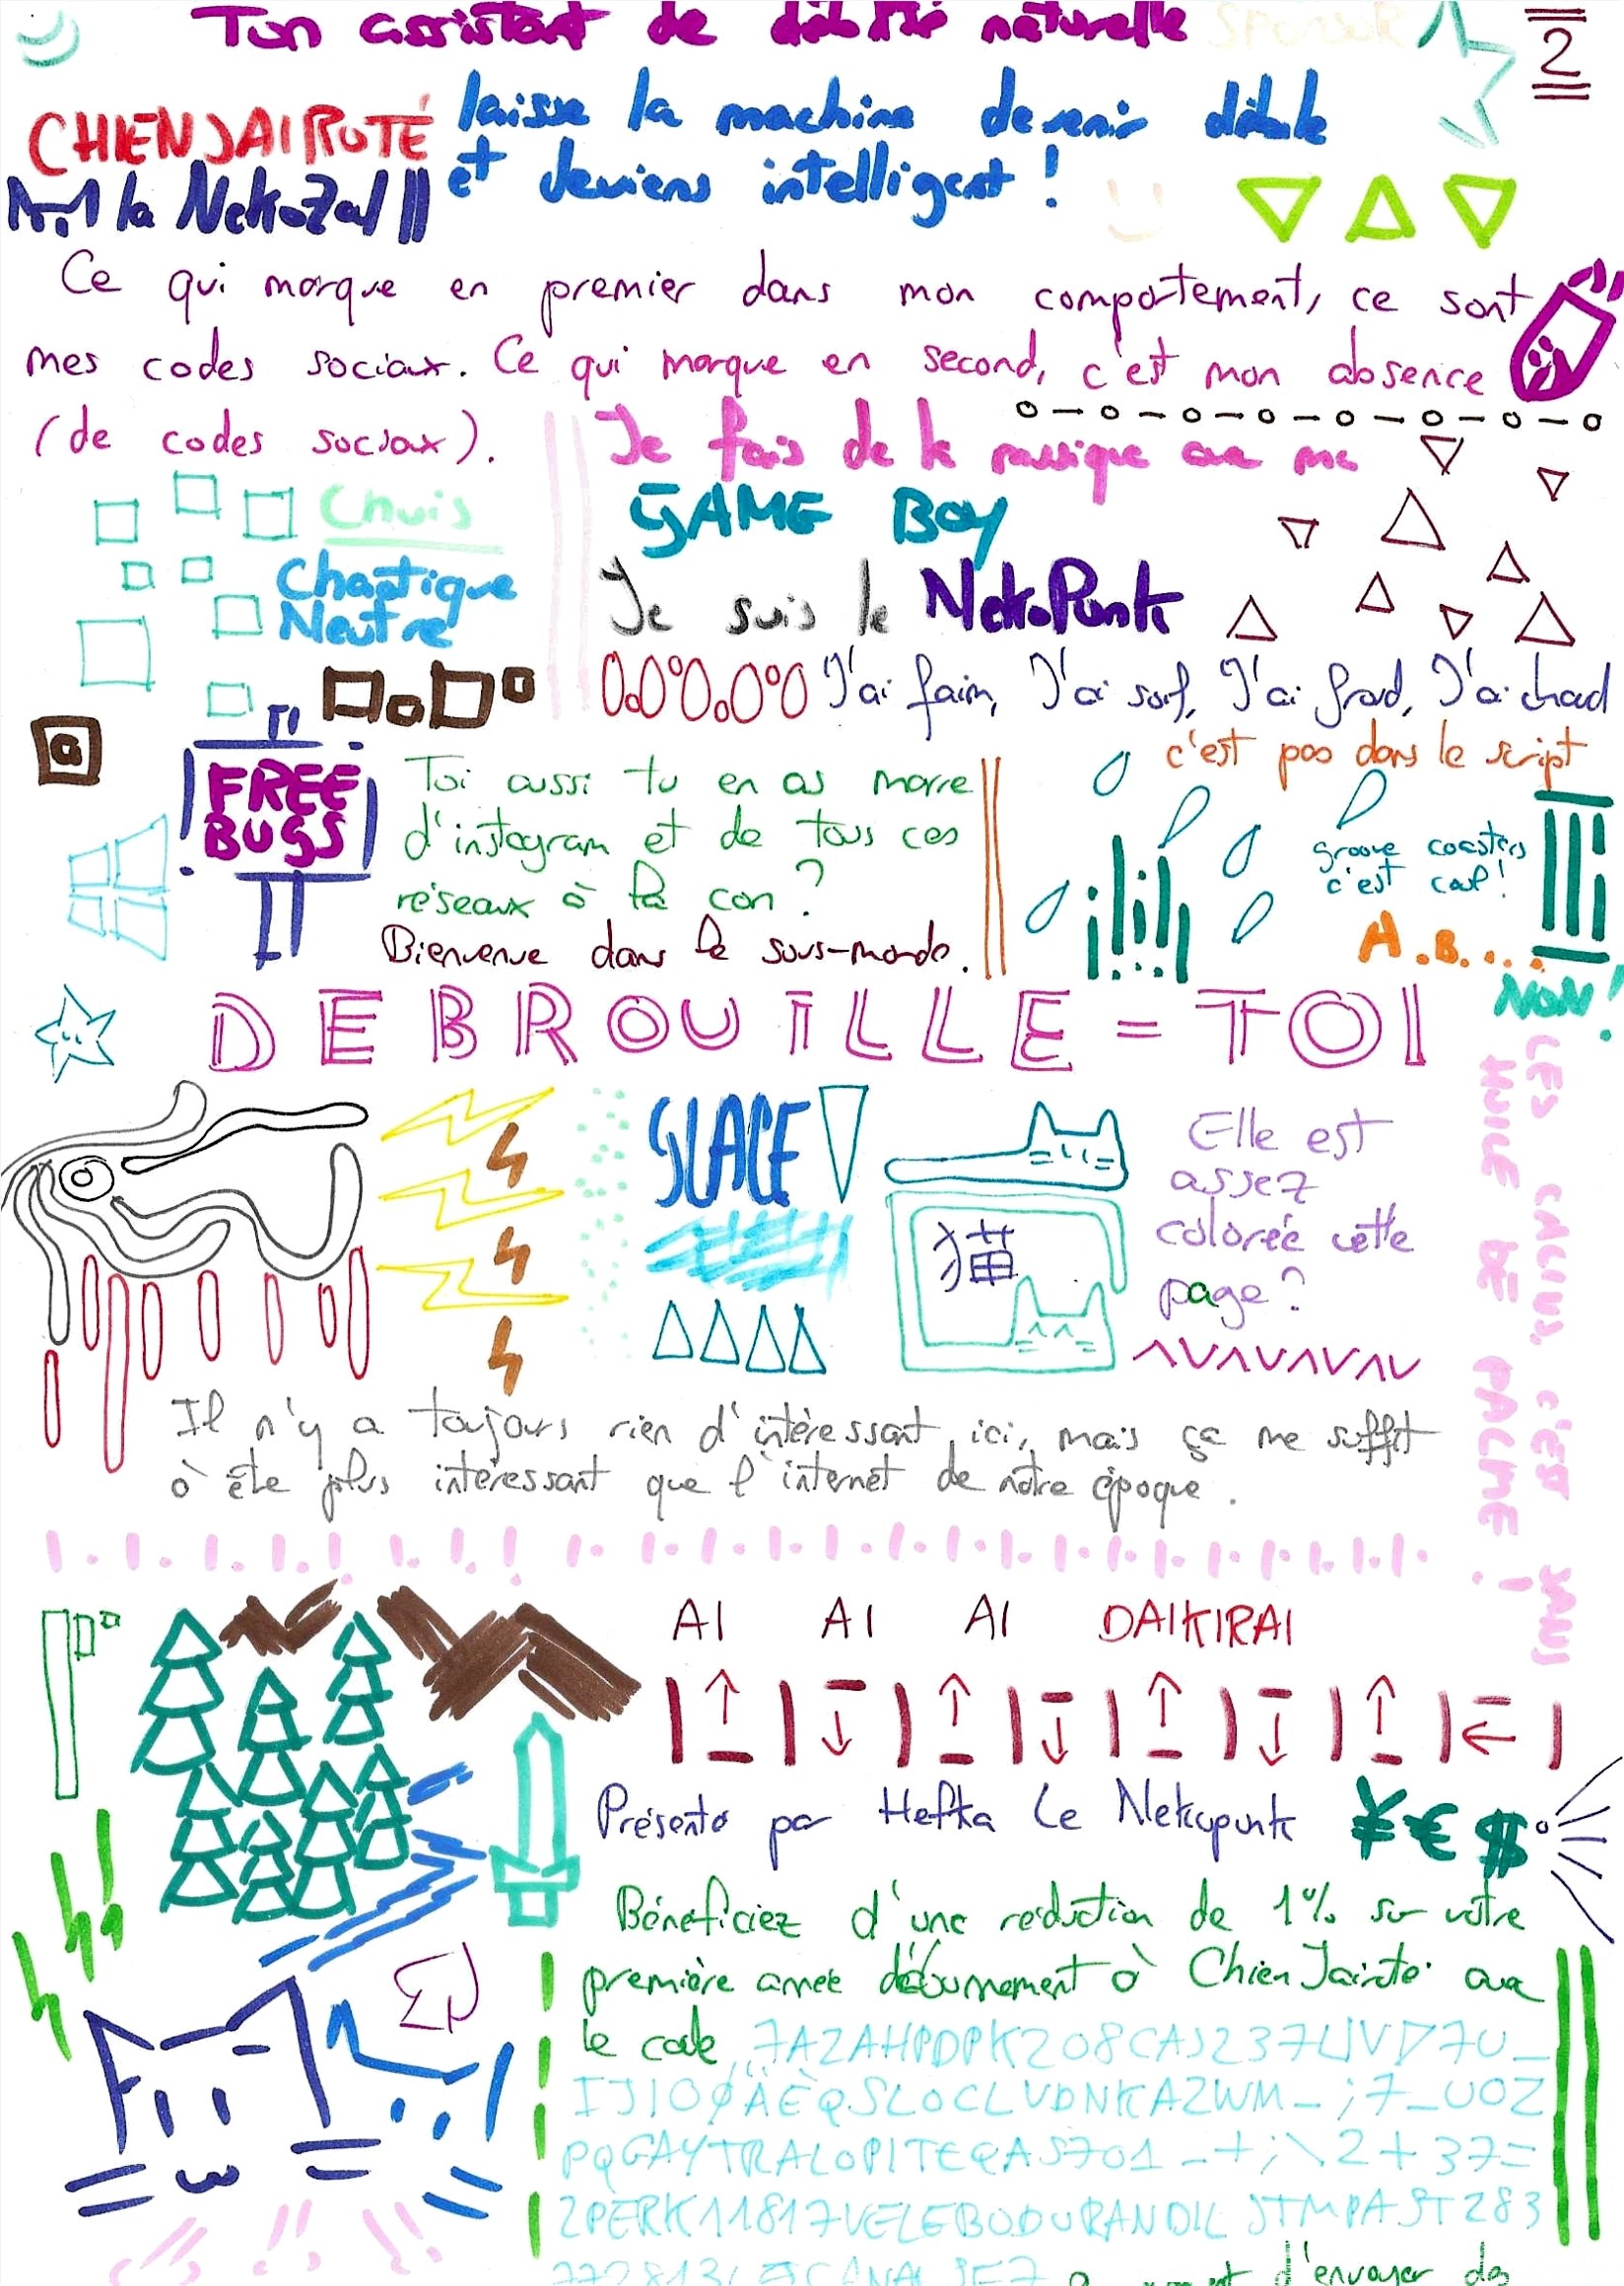 Ton assistant de débilité naturelle SPONSOR
2
CHIENJAIROTÉ
laisse la machine devenir débile
et deviens intelligent !
la NekoZal
Ce qui marque en premier dans mon comportement, ce sont
mes codes sociaux. Ce qui marque en second, c'est mon absence
(de codes sociaux).
Je fais de la musique avec ma
GAME BOY
Chuis
Chaotique
Neutre
Je suis le NekoPunk
J'ai faim, J'ai soif, J'ai froid, J'ai chaud
c'est pas dans le script
FREE
BUGS
Toi aussi tu en as marre
d'instagram et de tous ces
réseaux à la con ?
Bienvenue dans le sous-monde.
groove coasters
c'est cool !
A.B....
NON !
DEBROUILLE-TOI
LES CACIUS, C'EST SANS
HUILE DE PALME !
GLACE
猫
Elle est
assez
colorée cette
page ?
Il n'y a toujours rien d'intéressant ici, mais ça me suffit
à être plus intéressant que l'internet de notre époque.
AI AI AI DAIKIRAI
↑ ↓ ↑ ↓ ↑ ↓ ↑ ←
Présenté par Hefka Le Nekopunk ¥€$
Bénéficiez d'une réduction de 1% sur votre
première année d'abonnement à ChienJairoté avec
le code 7AZAHPDPK208CAJ237LJVD7U_
IJIOØÄÈQSLOCLVDNKAZWM_;7_UOZ
PQGAYTRALOPITEQAS701_+;\2+37=
2PERK11817VELEBODURANDIL JTMPAST283
d'envoyer de